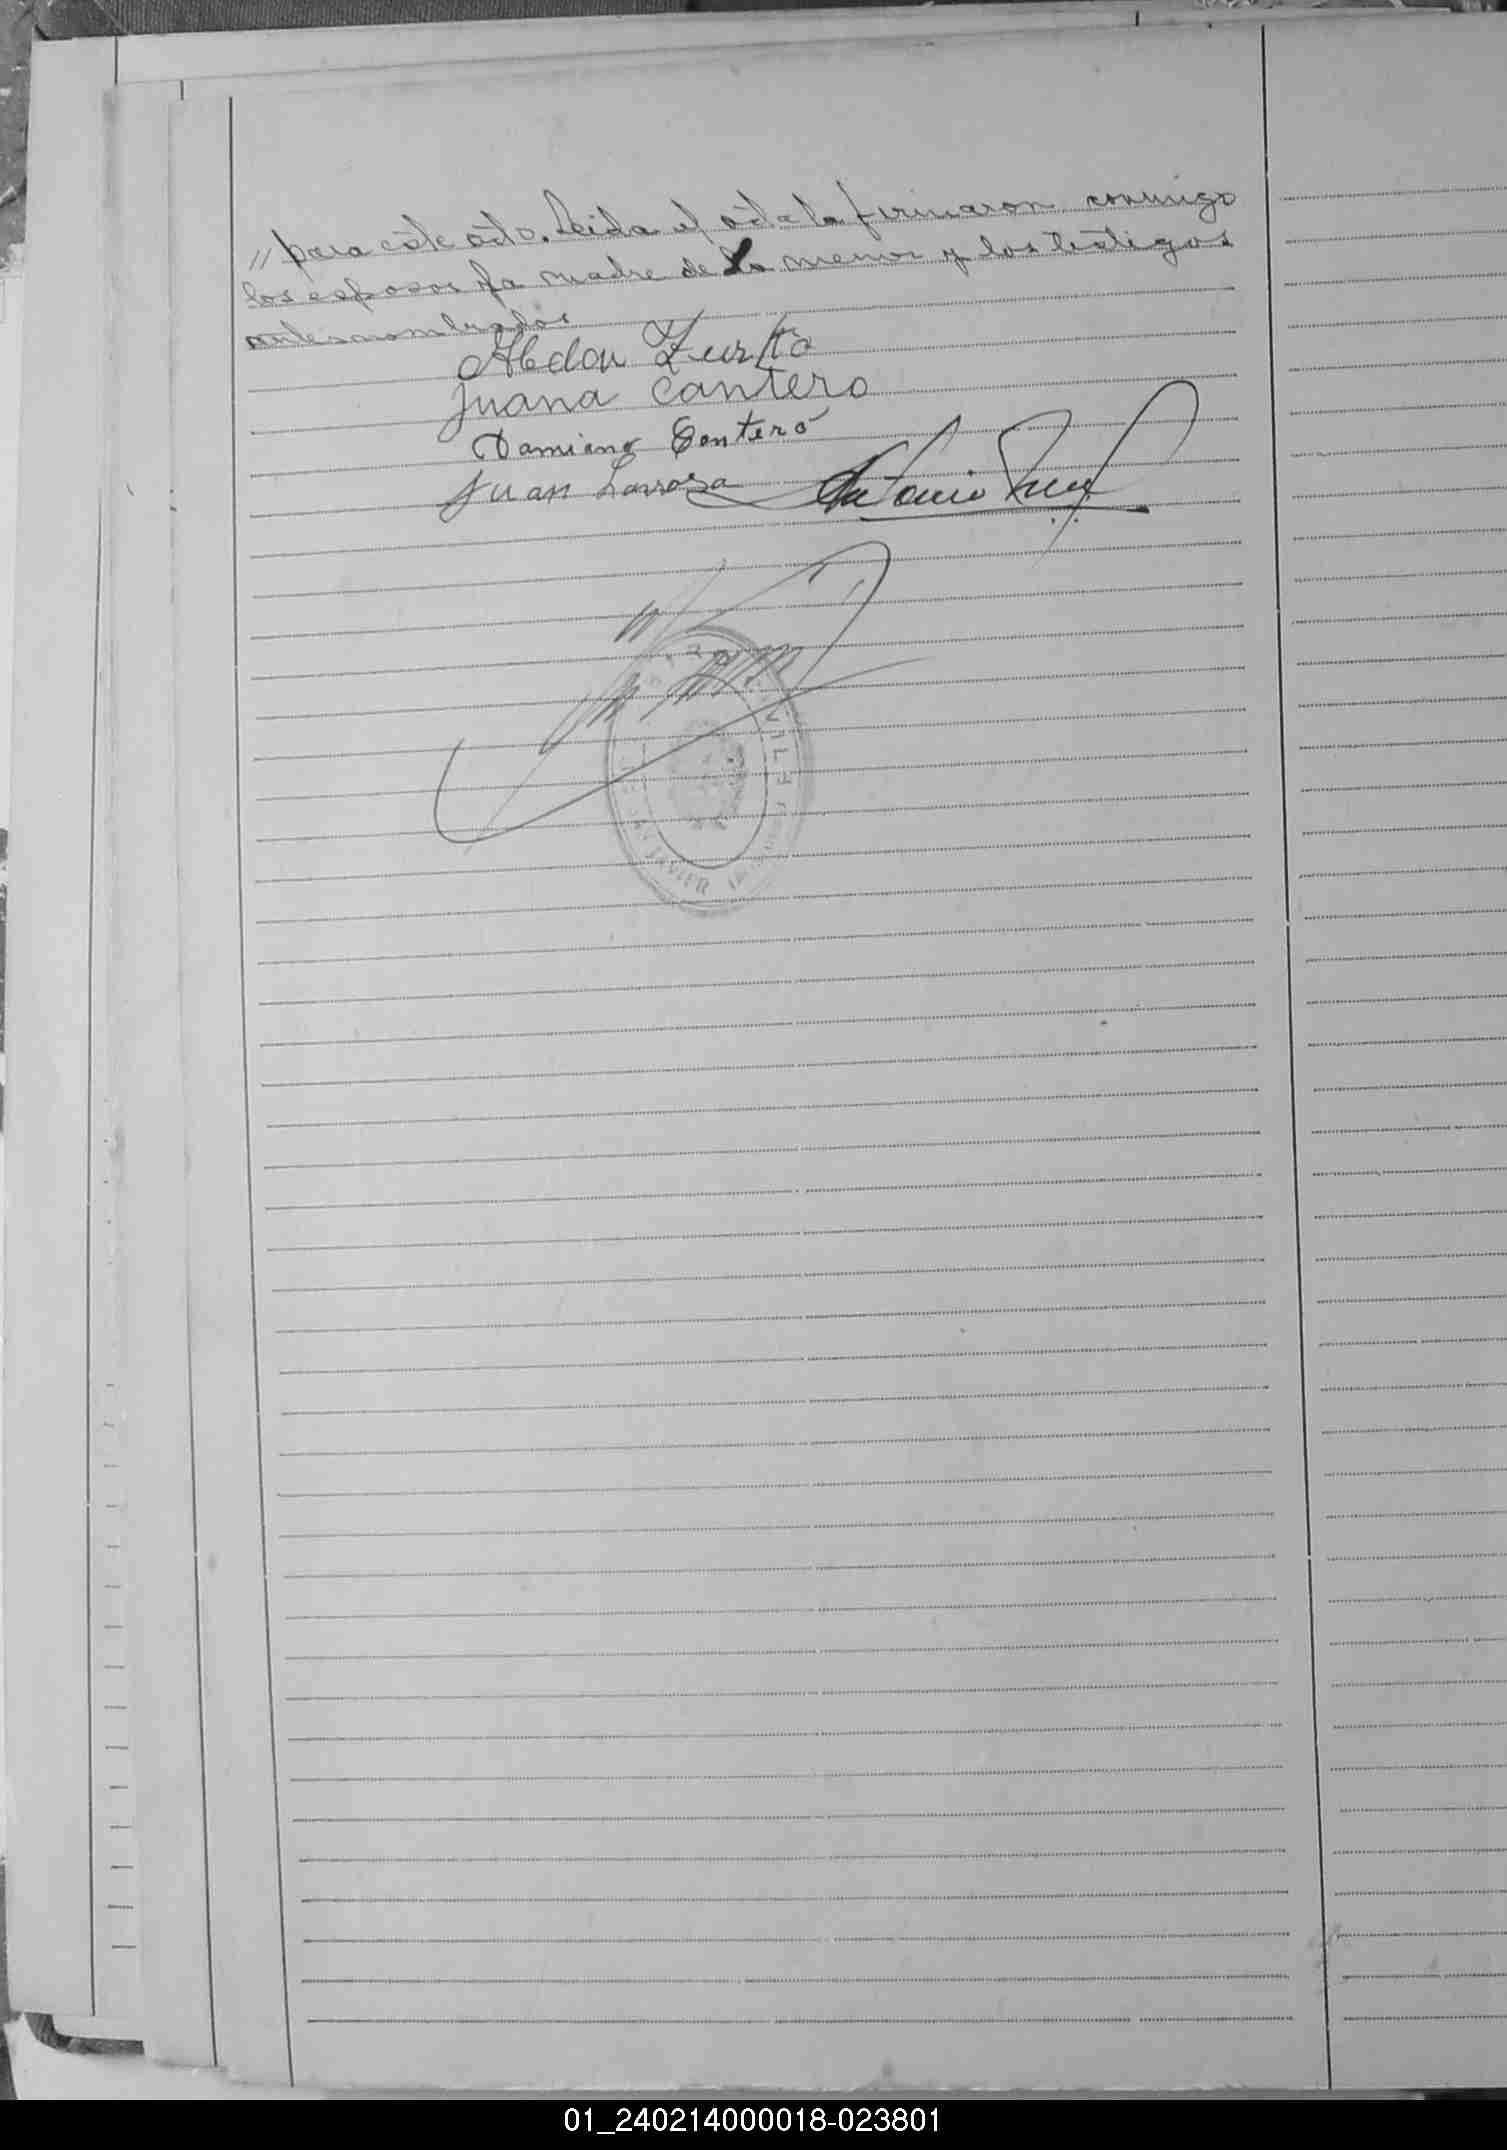 // para este acto. Leida el acta la firmaron conmigo
los esposos, la madre de la menor y los testigos
antes nombrados
Abdon Zurita
Juana Cantero
Damiana Cantero
Juan Larrosa Antonio
JAVIER
01_240214000018-023801